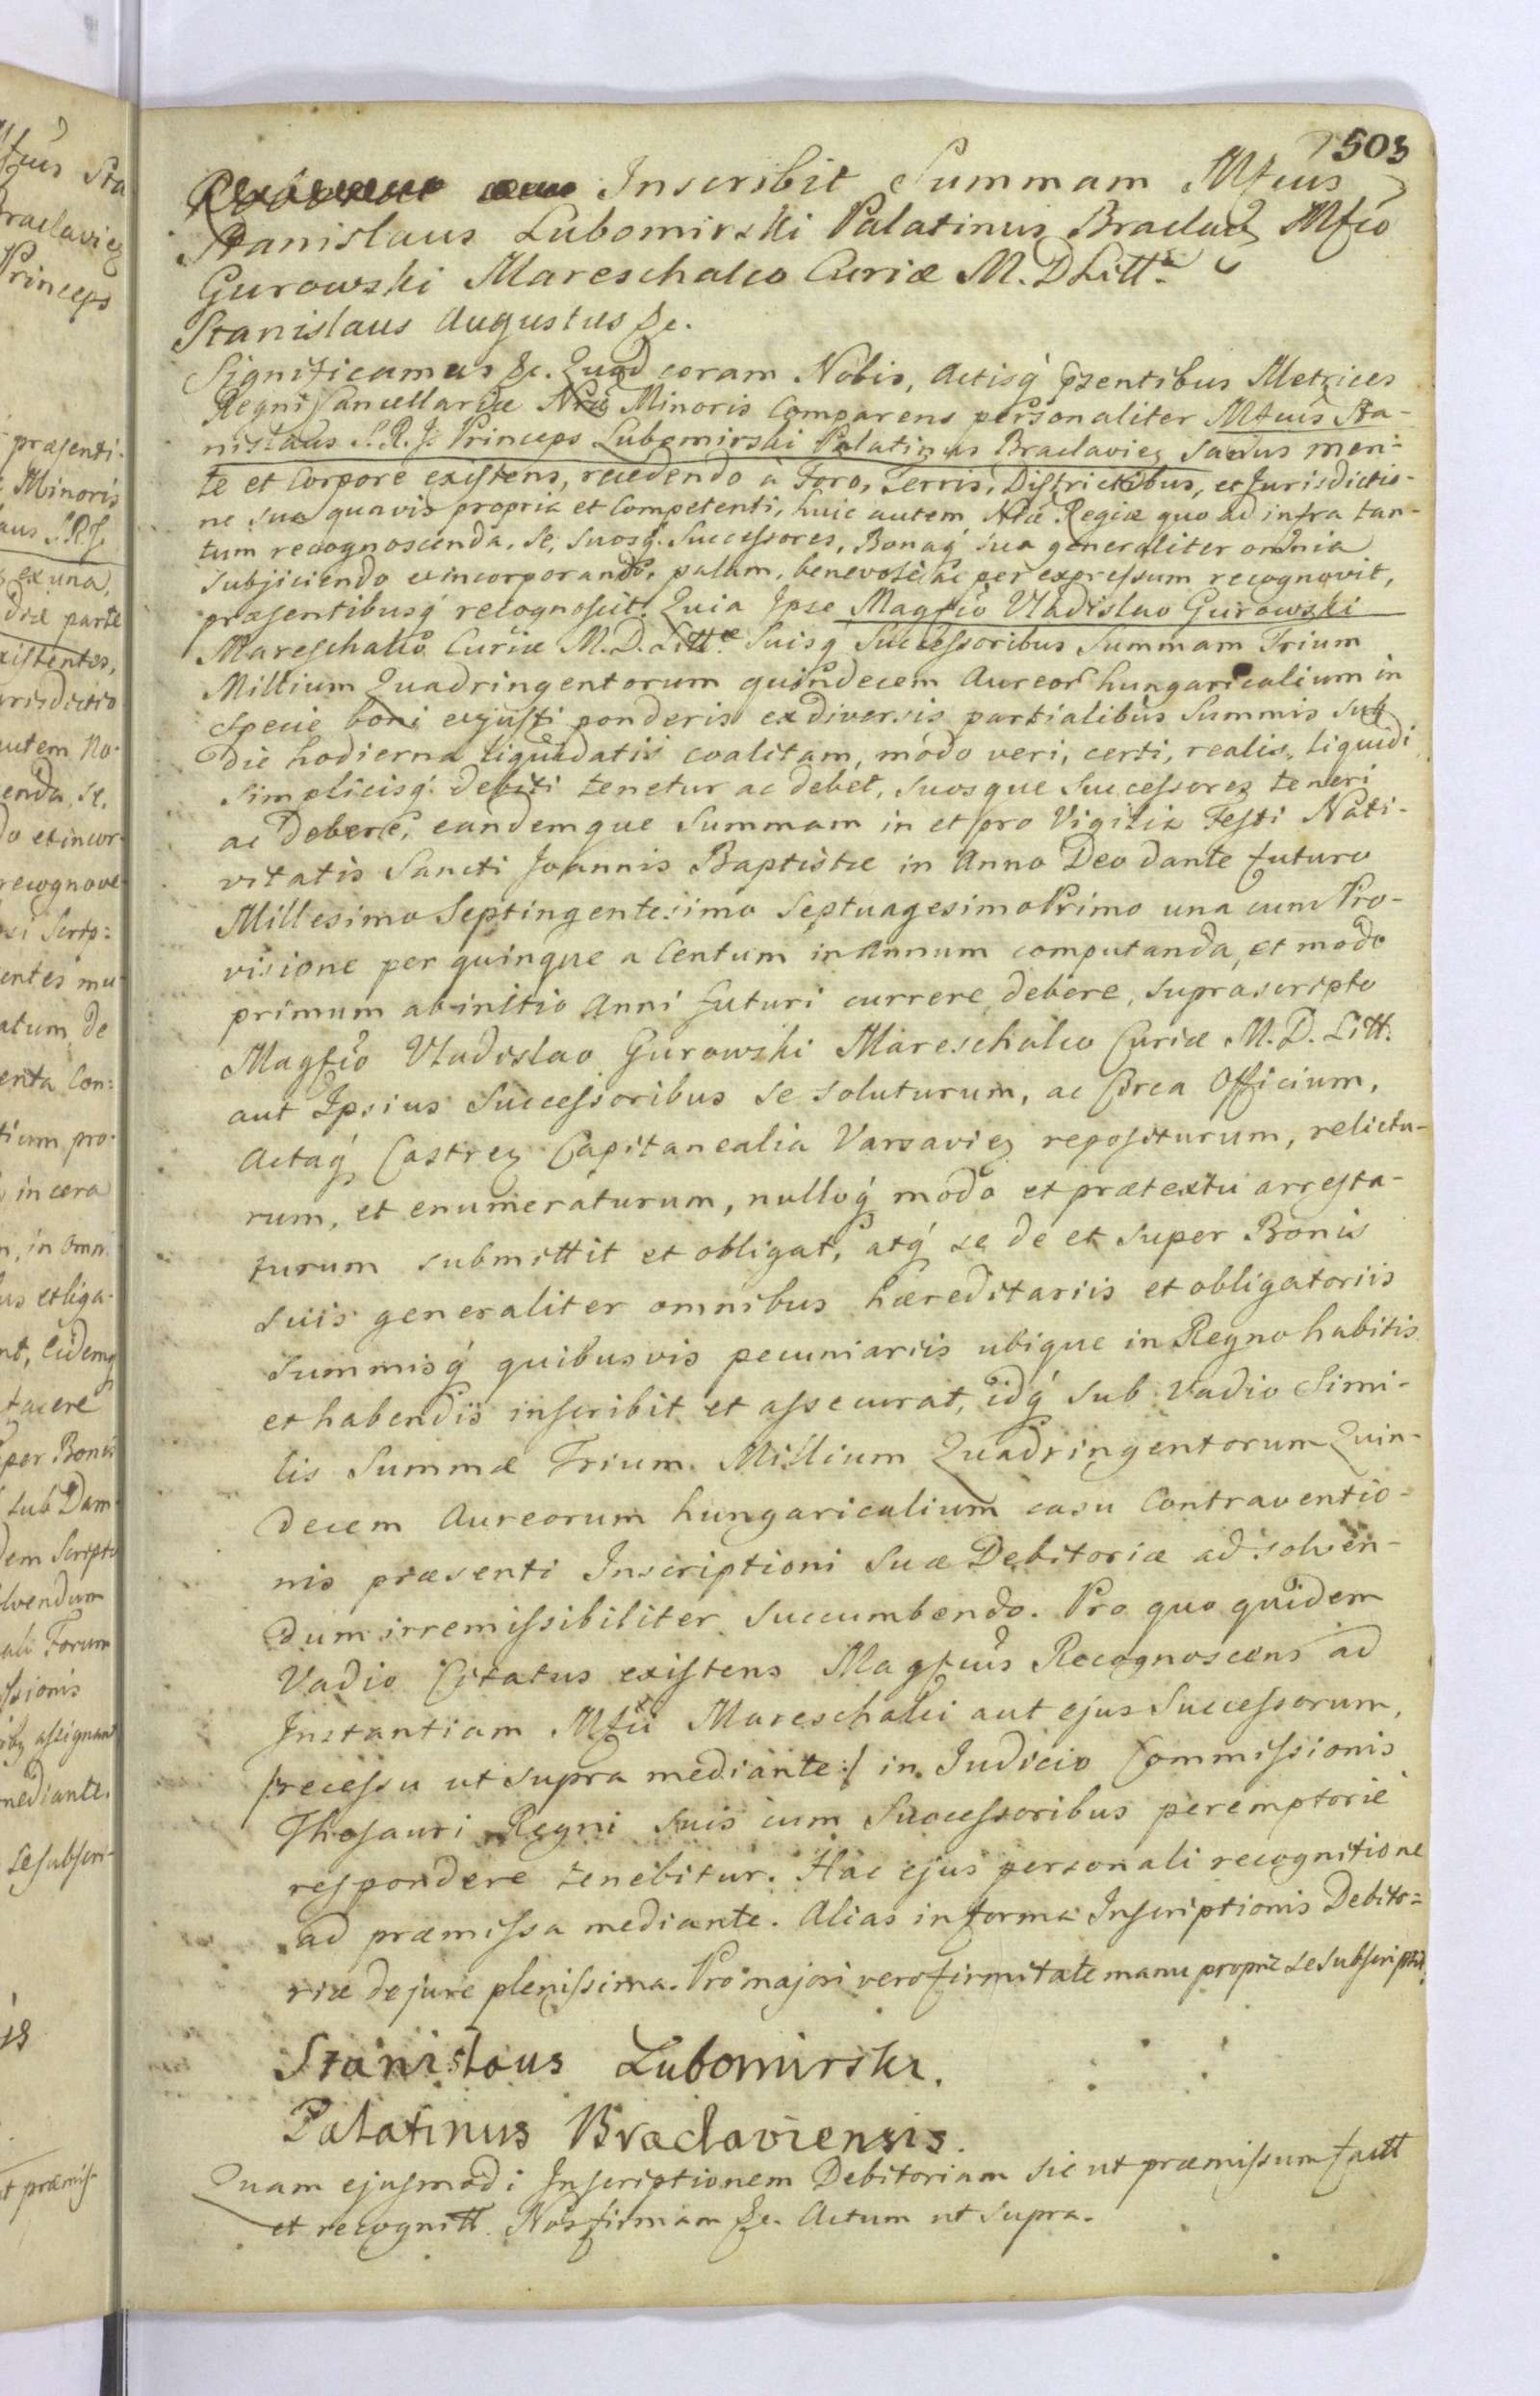 503
Inscribit Summam Mfcus
Stanislaus Lubomirski Palatinus Braclav Mfco
Gurowski Mareschalco Curiæ M. D Litt.
Stanislaus Augustus &c.
Significamus &c. Quod coram Nobis, Actisq́ pz̃entibus Metrices
Regni Cancellariæ Nræ Minoris Comparens personaliter Mfcus Sta-
nislaus S. R. J. Princeps Lubomirski Palatinus Braclavieȝ Sanus men-
te et Corpore existens, recedendo à Foro, Terris, Districtibus, et Jurisdictio-
ne sua quavis propria et Competenti, huic autem Nræ Regiæ quo ad infra tan-
tum recognoscenda, Se, Suosq́ Successores, Bonaq́ sua generaliter omnia
subjiciendo et incorporando, palam, benevole ac per expressum recognovit,
præsentibusq́ recognoscit. Quia Ipse Magfco Vladislao Gurowski
Mareschalco Curiæ M. D. Littæ Suisq́ Successoribus Summam Trium
Millium Quadringentorum quindecem Aureor hungaricalium in
specie boni et justi ponderis ex diversis partialibus Summis sub
die hodierna liquidatis coalitam, modo veri, certi, realis, liquidi
simplicisq́ debiti tenetur ac debet, suosque Successores teneri
ac debere, eandemque Summam in et pro Vigilia Festi Nati-
vitatis Sancti Joannis Baptistæ in Anno Deo dante futuro
Millesimo Septingentesimo Septuagesimo Primo una cum Pro-
visione per quinque a Centum in Annum computanda, et modo
primum ab initio Anni futuri currere debere, suprascripto
Magfco Vladislao Gurowski Mareschalco Curiæ M. D. Litt.
aut Ipsius Successoribus se soluturum, ac Circa Officium,
Actaq́ Castreȝ Capitanealia Varsavieȝ repositurum, relictu-
rum, et enumeraturum, nulloq́ modo et prætextu arresta-
turum submittit et obligat, atq́ se de et super Bonis
suis generaliter omnibus hæreditariis et obligatoriis
Summisq́ quibusvis pecuniariis ubique in Regno habitis
et habendis inscribit et assecurat, idq́ sub Vadio Simi-
lis Summæ Trium Millium Quadringentorum Quin-
decem Aureorum hungaricalium casu Contraventio-
nis præsenti Inscriptioni Suæ Debitoriæ ad solven-
dum irremissibiliter succumbendo. Pro quo quidem
Vadio Citatus existens Magfcus Recognoscens ad
Instantiam Mfci Mareschalci aut ejus Successorum,
/recessu ut supra mediante:/ in Judicio Commissionis
Thesauri Regni suis cum Successoribus peremptorie
respondere tenebitur. Hac ejus personali recognitione
ad præmissa mediante. Alias in forma Inscriptionis Debito=
riæ de jure plenissima. Pro majori vero firmitate manu propria se subscripsit.
Stanislaus Lubomirski.
Palatinus Braclaviensis.
Quam ejusmodi Inscriptionem Debitoriam sic ut præmissum factt
et recognitt. Nos firmam &c. Actum ut supra.